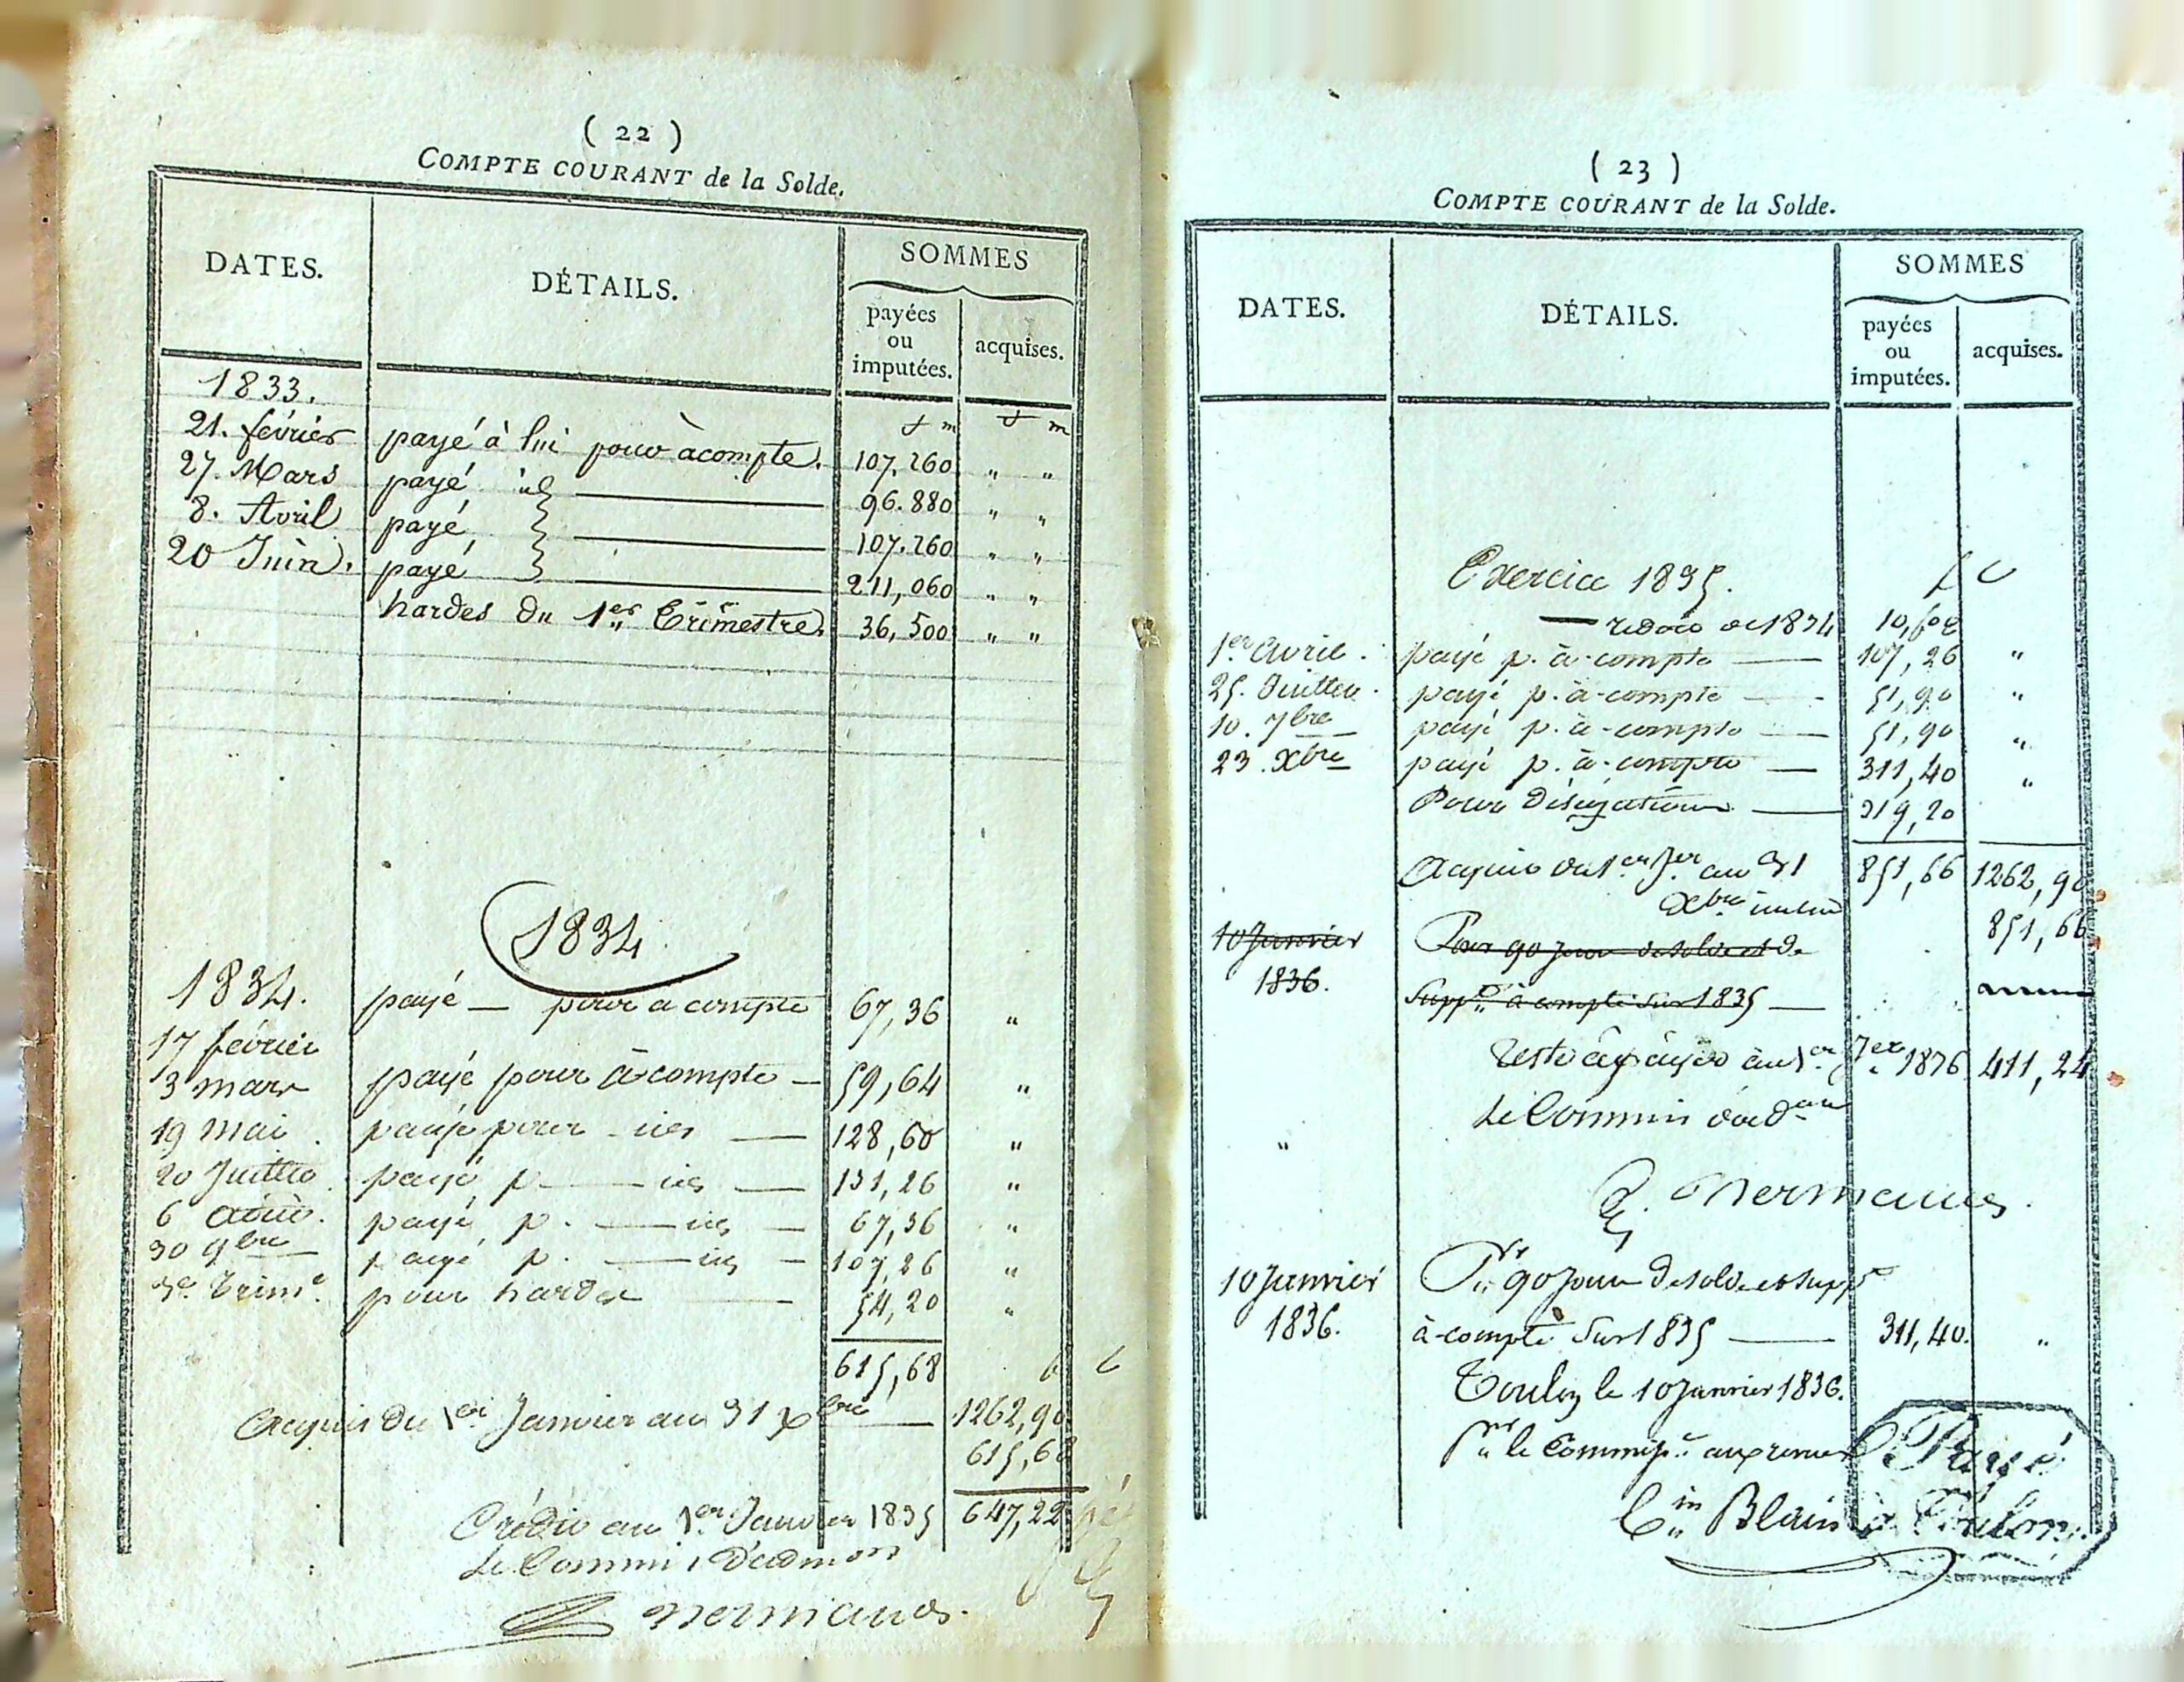 ( 22 )
COMPTE COURANT de la Solde.
DATES. DÉTAILS. SOMMES
payées ou imputées. acquises.
1833.
21. février payé à lui pour àcompte. 107.260 " "
27. Mars payé id 96.880 " "
8. Avril payé 107.260 " "
20 Juin. payé 211,060 " "
hardes du 1er Trimestre. 36,500 " "
1834
1834.
17 février payé — pour a compte 67,36 "
3 mars payé pour à compte — 59,64 "
19 Mai payé pour — 128,60 "
20 Juillet payé p — 131,26 "
6 août payé p. — 67,36 "
30 9bre payé p. — 107,26 "
Trime. pour hardes 54,20 "
615,68
Acquis du 1er Janvier au 31 Xbre — 1262,90
615,68
Crédit au 1er Janvier 1835 647,22
Le Commis d'admon
( 23 )
COMPTE COURANT de la Solde.
DATES. DÉTAILS. SOMMES
payées ou imputées. acquises.
Exercice 1835. f c
— de 1834 10,
1er avril. payé p. à-compte — 107,26 "
25. Juillet. payé p. à-compte — 51,90 "
10. 7bre payé p. à-compte — 51,90 "
23. Xbre payé p. à-compte — 311,40 "
Pour délégation — 319,20
Acquis du 1er Jer au 31 851,66 1262,90
Xbre inclus 851,66
10 Janvier Pour 90 jours de solde et de
1836. Supp.t à compte sur 1835 —
Reste à payer au 1er Jer 1836 411,24
Le Commis d'ad
"
10 Janvier Pr 90 jours de solde et supp
1836. à-compte Sur 1835 — 311,40. "
Toulon le 10 Janvier 1836.
Pr le Commisre aux revues
Cin Blain
Payé
à Toulon